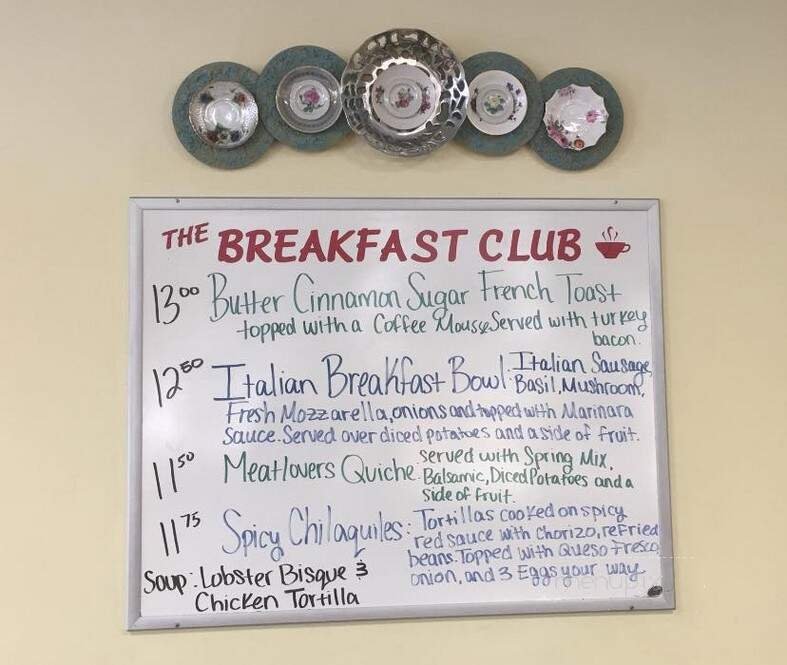 THE BREAKFAST CLUB
13⁰⁰ Butter Cinnamon Sugar French Toast
topped with a Coffee Mousse Served with turkey
bacon.
12⁵⁰ Italian Breakfast Bowl: Italian Sausage,
Basil, Mushroom,
Fresh Mozzarella, onions and topped with Marinara
Sauce. Served over diced potatoes and a side of fruit.
11⁵⁰ Meatlovers Quiche. served with Spring Mix,
Balsamic, Diced Potatoes and a
side of fruit.
11⁷⁵ Spicy Chilaquiles: Tortillas cooked on spicy
red sauce with Chorizo, refried
beans. Topped with Queso Fresco,
onion, and 3 Eggs your way
Soup: Lobster Bisque &
Chicken Tortilla